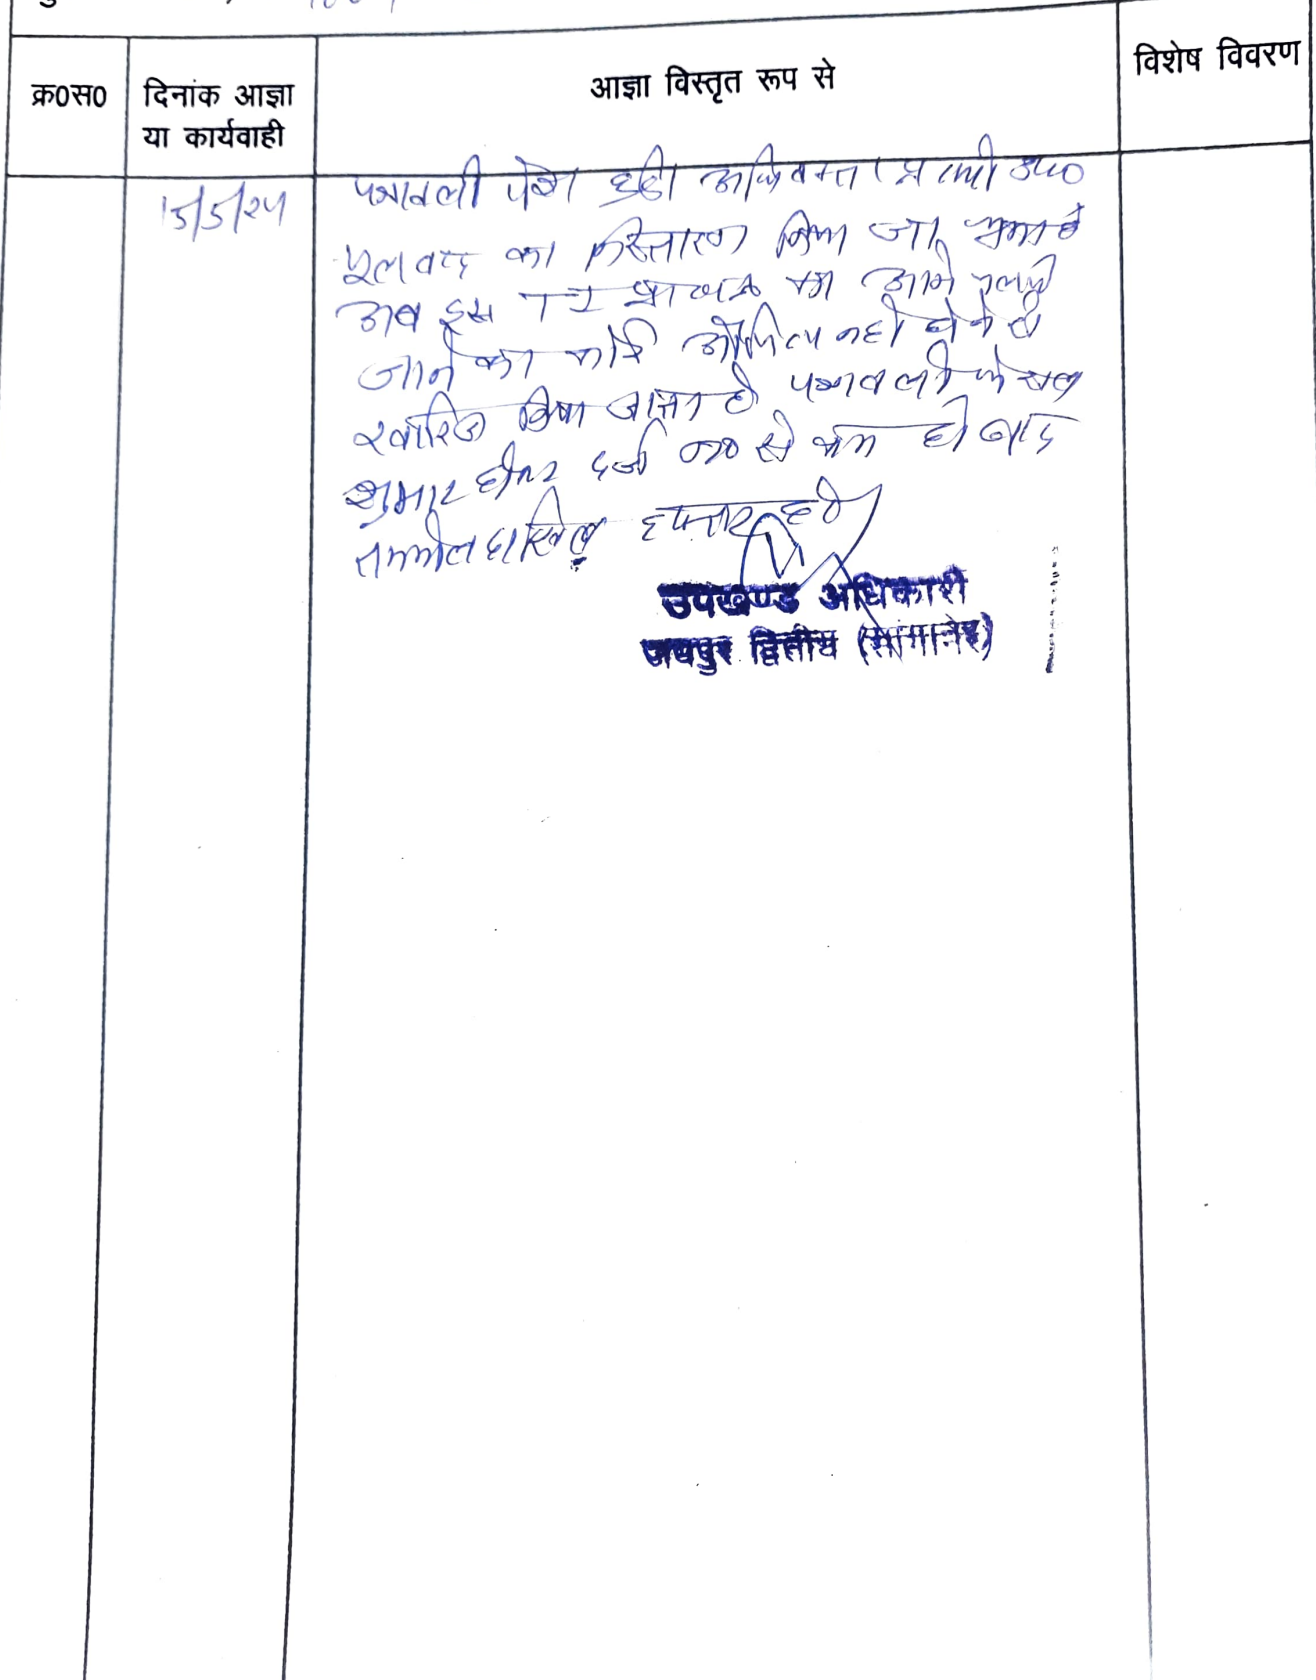 क्र0स0 दिनांक आज्ञा या कार्यवाही आज्ञा विस्तृत रूप से विशेष विवरण
15/5/24
पत्रावली पेश हुई। अधिवक्ता प्रार्थी उप०
मूलवाद का निस्तारण किया जा चुका है
अब इस TI प्रा० पत्र का आगे चलाये
जाने का कोई औचित्य नहीं होने से
खारिज किया जाता है पत्रावली फैसल
शुमार होकर दर्ज न० से कम हो बाद
तकमील दाखिल दफ्तर हो
उपखण्ड अधिकारी
जयपुर द्वितीय (सांगानेर)